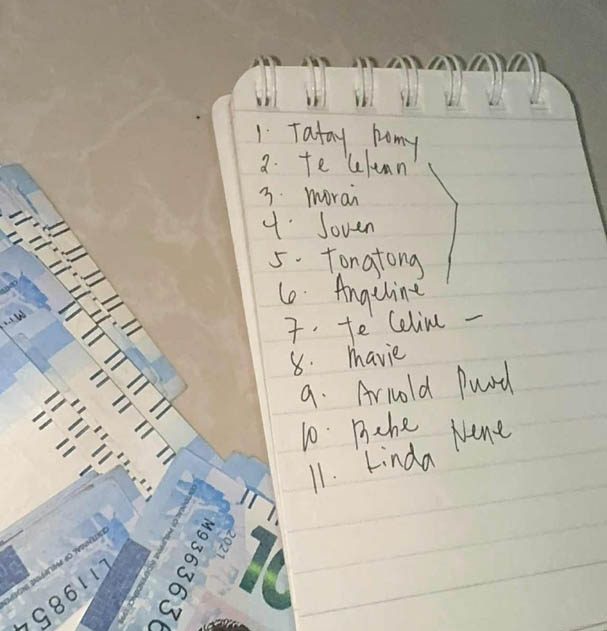 1. Tatay Romy
2. Te
3. morai
4. Joven
5. Tongtong
6. Angeline
7. Te Celine —
8. mavie
9. Arnold
10. Bebe Nene
11. Linda
LI19854
M9363636
2021
10